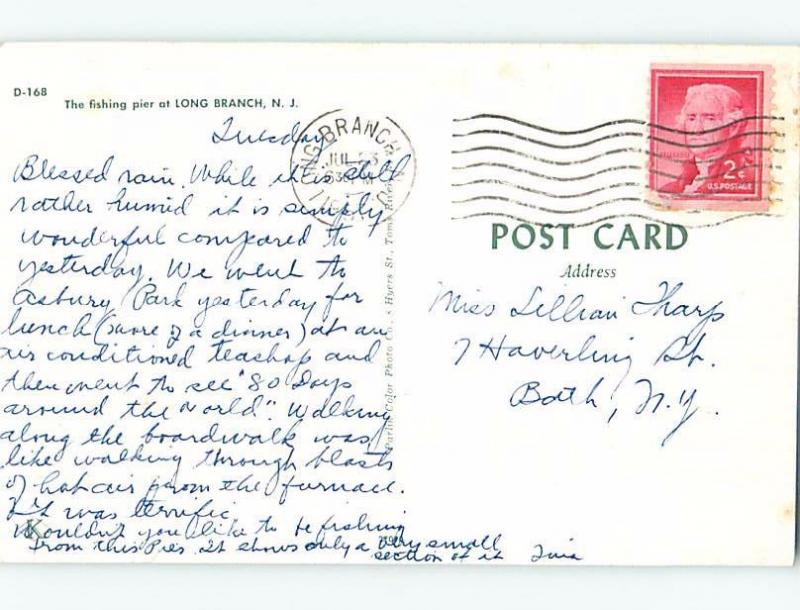 D-168
The fishing pier at LONG BRANCH, N. J.
Tuesday
Blessed rain. While it is still
rather humid it is simply
wonderful compared to
yesterday. We went to
Asbury Park yesterday for
lunch (more of a dinner) at an
air conditioned teashop and
then went to see "80 Days
around the world". Walking
along the boardwalk was
like walking through blasts
of hot air from the furnace.
It was terrific.
Wouldn't you like to be fishing
from this Pier. It shows only a very small
section of it
K
LONG BRANCH
JUL
PM
Color Photo Co., 8 Hyers St., Toms River
2¢
U.S. POSTAGE
POST CARD
Address
Miss Lillian Tharp
7 Haverling St.
Bath, N.Y.